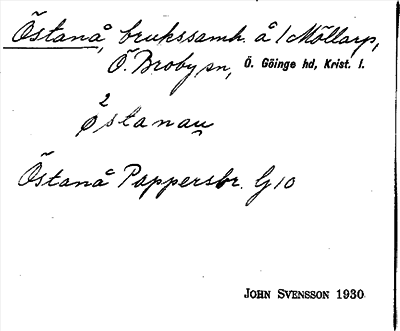 Östanå, brukssamh. å 1 Möllarp,
Ö. Broby sn, Ö. Göinge hd, Krist. l.
2
østanau̯
Östanå Pappersbr. G10
JOHN SVENSSON 1930